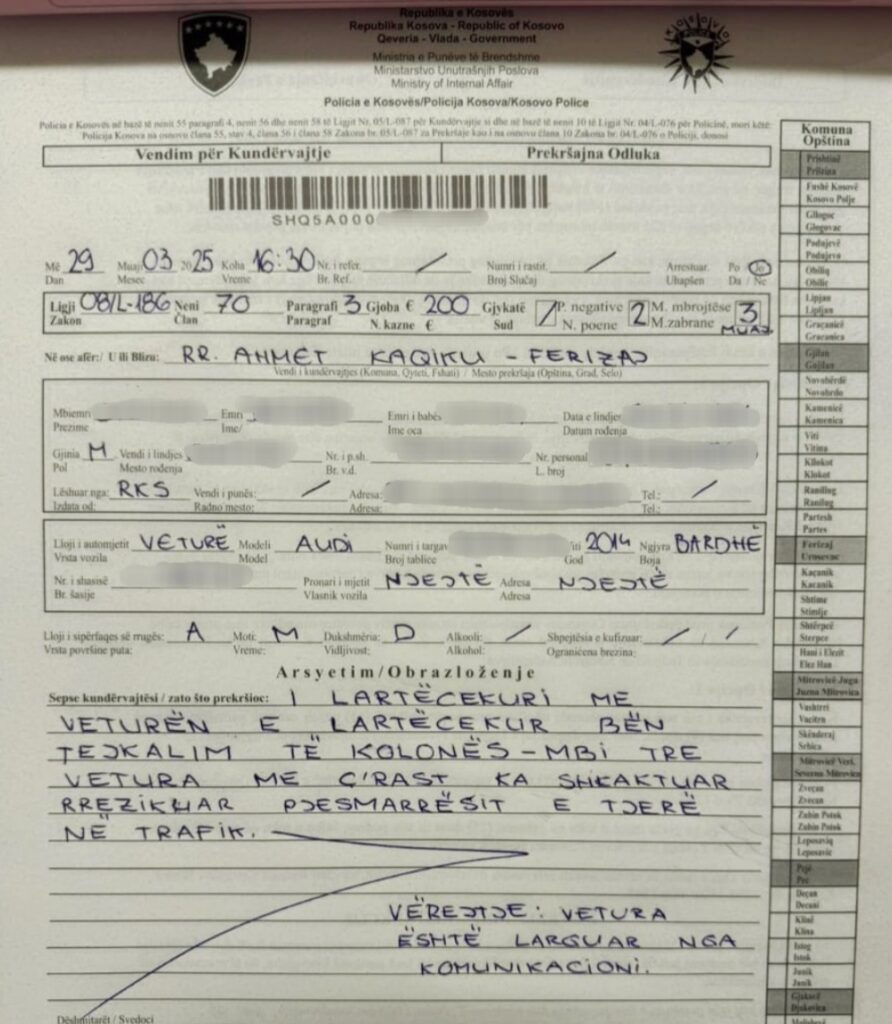 Republika e Kosovës
Republika Kosova - Republic of Kosovo
Qeveria - Vlada - Government
Ministria e Punëve të Brendshme
Ministarstvo Unutrašnjih Poslova
Ministry of Internal Affair
Policia e Kosovës/Policija Kosova/Kosovo Police
Policia e Kosovës në bazë të nenit 55 paragrafi 4, nenit 56 dhe nenit 58 të Ligjit Nr. 05/L-087 për Kundërvajtje si dhe në bazë të nenit 10 të Ligjit Nr. 04/L-076 për Policinë, mori këtë
Policija Kosova na osnovu člana 55, stav 4, člana 56 i člana 58 Zakona br. 05/L-087 za Prekršaje kao i na osnovu člana 10 Zakona br. 04/L-076 o Policiji, donosi
Vendim për Kundërvajtje Prekršajna Odluka
SHQ5A000
Më 29 Muaji 03 2025 Koha 16:30 Nr. i refer. / Numri i rastit. / Arrestuar. Po Jo
Dan Mesec Vreme Br. Ref. Broj Slučaj Uhapšen Da / Ne
Ligji 08/L-186 Neni 70 Paragrafi 3 Gjoba € 200 Gjykatë / P. negative 2 M. mbrojtëse 3
Zakon Član Paragraf N. kazne € Sud N. poene M.zabrane MUAJ
Në ose afër:/ U ili Blizu: RR. AHMET KAQIKU - FERIZAJ
Vendi i kundërvajtjes (Komuna, Qyteti, Fshati) / Mesto prekršaja (Opština, Grad, Selo)
Mbiemri Emri Emri i babës Data e lindjes
Prezime Ime/ Ime oca Datum rođenja
Gjinia M Vendi i lindjes Nr. i p.sh. Nr. personal
Pol Mesto rođenja Br. v.d. L. broj
Lëshuar nga: RKS Vendi i punës: / Adresa: Tel.: /
Izdata od: Radno mesto: Adresa: Tel.:
Lloji i automjetit VETURË Modeli AUDI Numri i targav Viti 2014 Ngjyra BARDHË
Vrsta vozila Model Broj tablice God Boja
Nr. i shasisë Pronari i mjetit NJEJTË Adresa NJEJTË
Br. šasije Vlasnik vozila Adresa
Lloji i sipërfaqes së rrugës: A Moti: M Dukshmëria: D Alkooli: / Shpejtësia e kufizuar: / / /
Vrsta površine puta: Vreme: Vidljivost: Alkohol: Ograničena brezina:
Arsyetim/Obrazloženje
Sepse kundërvajtësi / zato što prekršioc: I LARTËCEKURI ME
VETURËN E LARTËCEKUR BËN
TEJKALIM TË KOLONËS - MBI TRE
VETURA ME Ç'RAST KA SHKAKTUAR
RREZIKUAR PJESMARRËSIT E TJERË
NË TRAFIK.
VËREJTJE: VETURA
ËSHTË LARGUAR NGA
KOMUNIKACIONI.
Dëshmitarët / Svedoci
Komuna
Opština
Prishtinë
Priština
Fushë Kosovë
Kosovo Polje
Gllogoc
Glogovac
Podujevë
Podujevo
Obiliq
Obilić
Lipjan
Lipljan
Graçanicë
Gracanica
Gjilan
Gnjilan
Novobërdë
Novobrdo
Kamenicë
Kamenica
Viti
Vitina
Kllokot
Klokot
Ranillug
Ranilug
Partesh
Partes
Ferizaj
Urosevac
Kaçanik
Kacanik
Shtime
Stimlje
Shtërpcë
Sterpce
Hani i Elezit
Elez Han
Mitrovicë Jugu
Juzna Mitrovica
Vushtrri
Vucitrn
Skënderaj
Srbica
Mitrovicë Veri.
Severna Mitrovica
Zveçan
Zvecan
Zubin Potok
Zubin Potok
Leposaviq
Leposavic
Pejë
Pec
Deçan
Decani
Klinë
Klina
Istog
Istok
Junik
Junik
Gjakovë
Djakovica